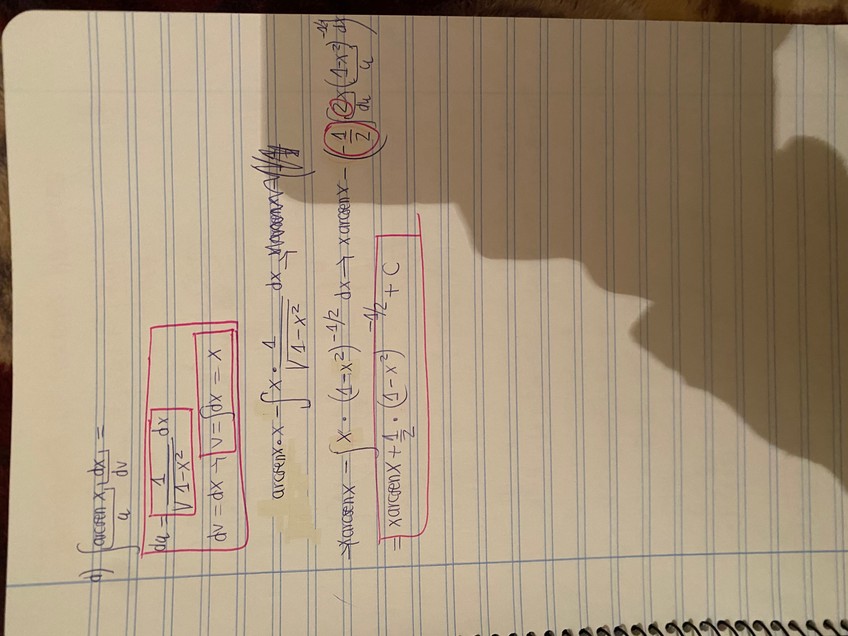 d) ∫ arcsen x dx =
u dv
du = 1/√(1-x²) dx
dv = dx → v = ∫dx = x
arcsenx • x - ∫ x • 1/√(1-x²) dx →
→ xarcsenx - ∫ x • (1-x²)^(-1/2) dx → xarcsenx - (-1/2) ∫ 2x (1-x²)^(-1/2) dx
du u
= xarcsenx + 1/2 • (1-x²)^(-1/2) + C